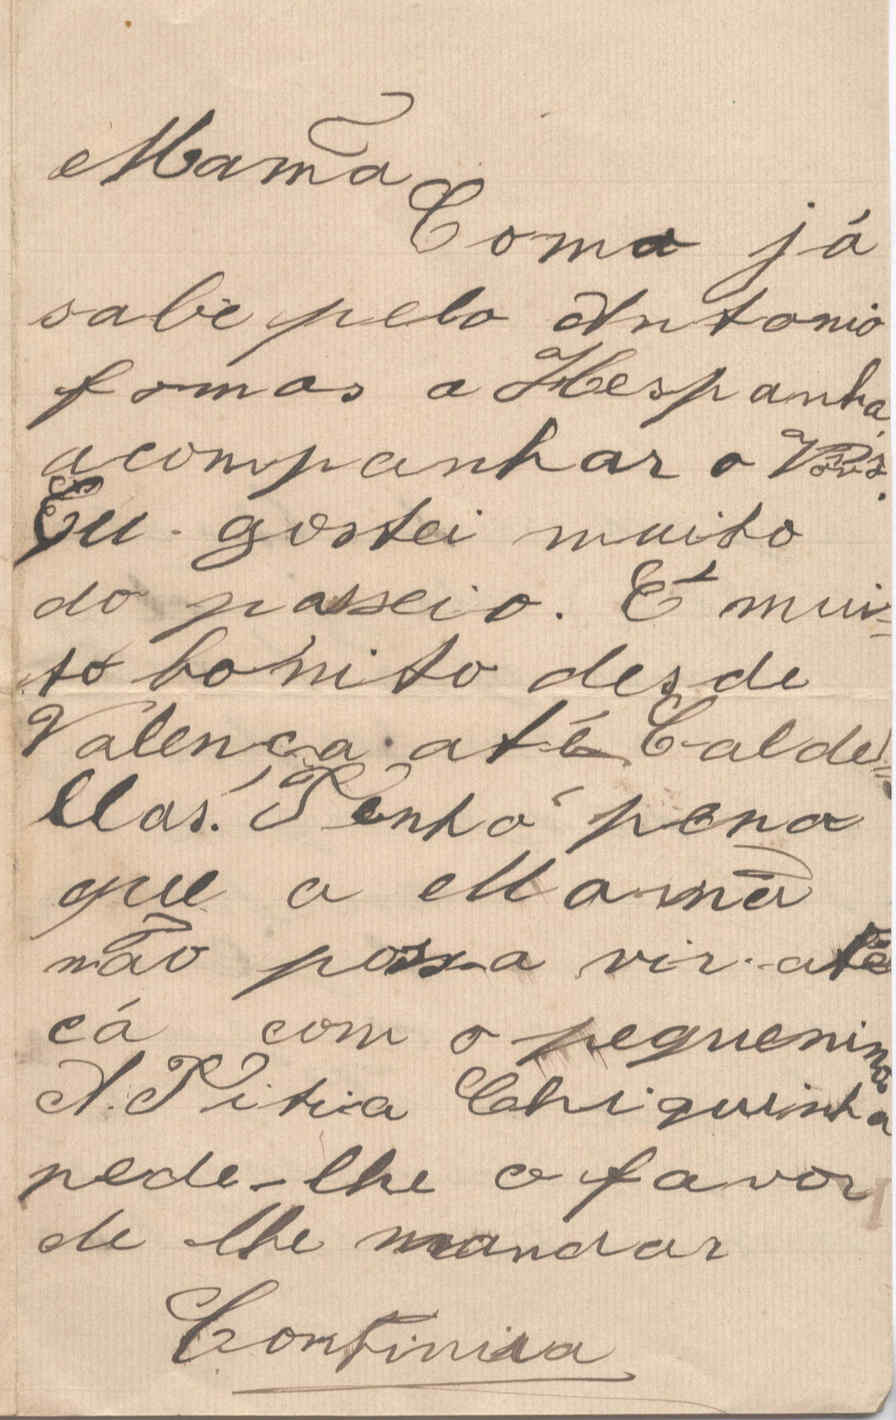 Mamã
Como já
sabe pelo Antonio
fomos a Hespanha
acompanhar o
Eu gostei muito
do passeio. É mui=
to bonito desde
Valença até Calde=
llas. Tenho pena
que a Mamã
não possa vir até
cá com o pequenino
A Titia Chiquinha
pede-lhe o favor
de lhe mandar
Continua